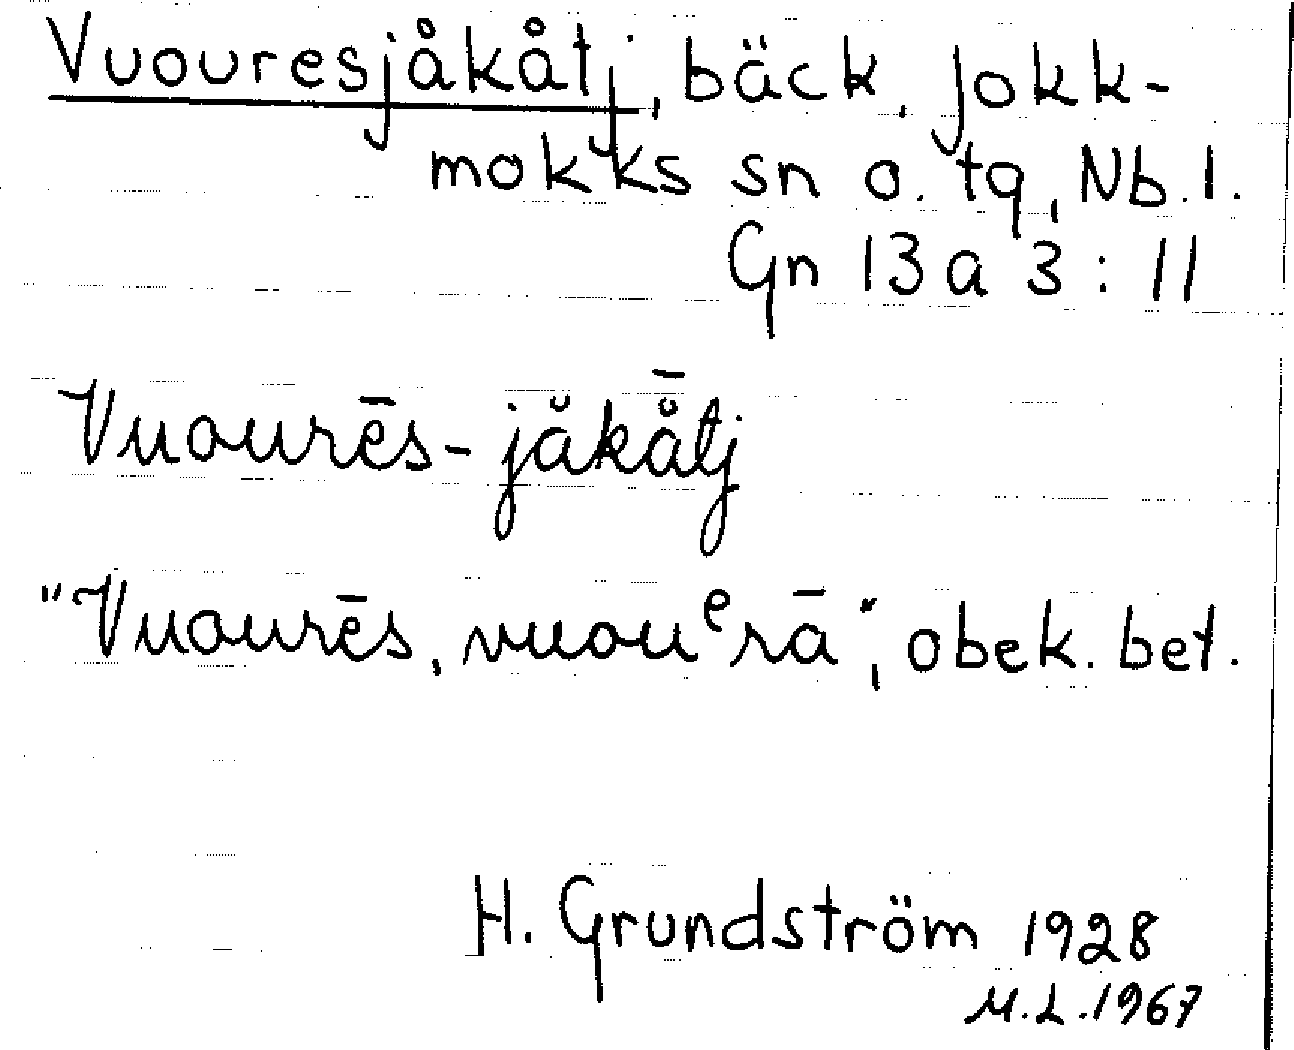 Vuouresjåkåtj, bäck, Jokk-
mokks sn o. tg, Nb. l.
Gn 13 a 3 : 11
Vuourēs-jåkå̄tj
"Vuourēs, vuouᵉrā", obek. bet.
H. Grundström 1928
M.L. 1967